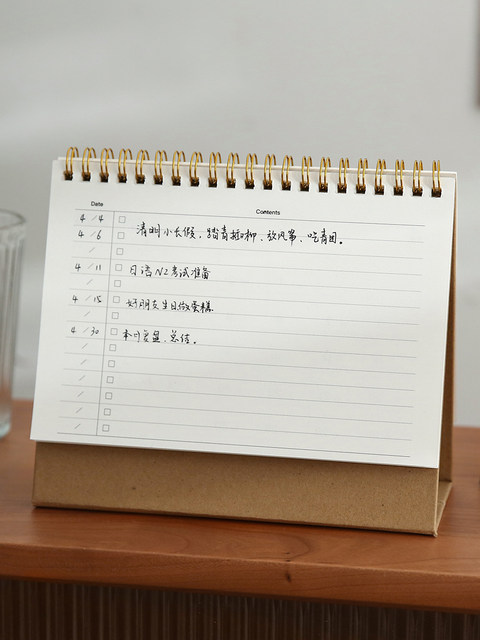 Date Contents
4/4
4/6 清明小长假、踏青插柳、放风筝、吃青团。
4/11 日语N2考试准备
4/15 好朋友生日做蛋糕
4/30 本月复盘、总结。